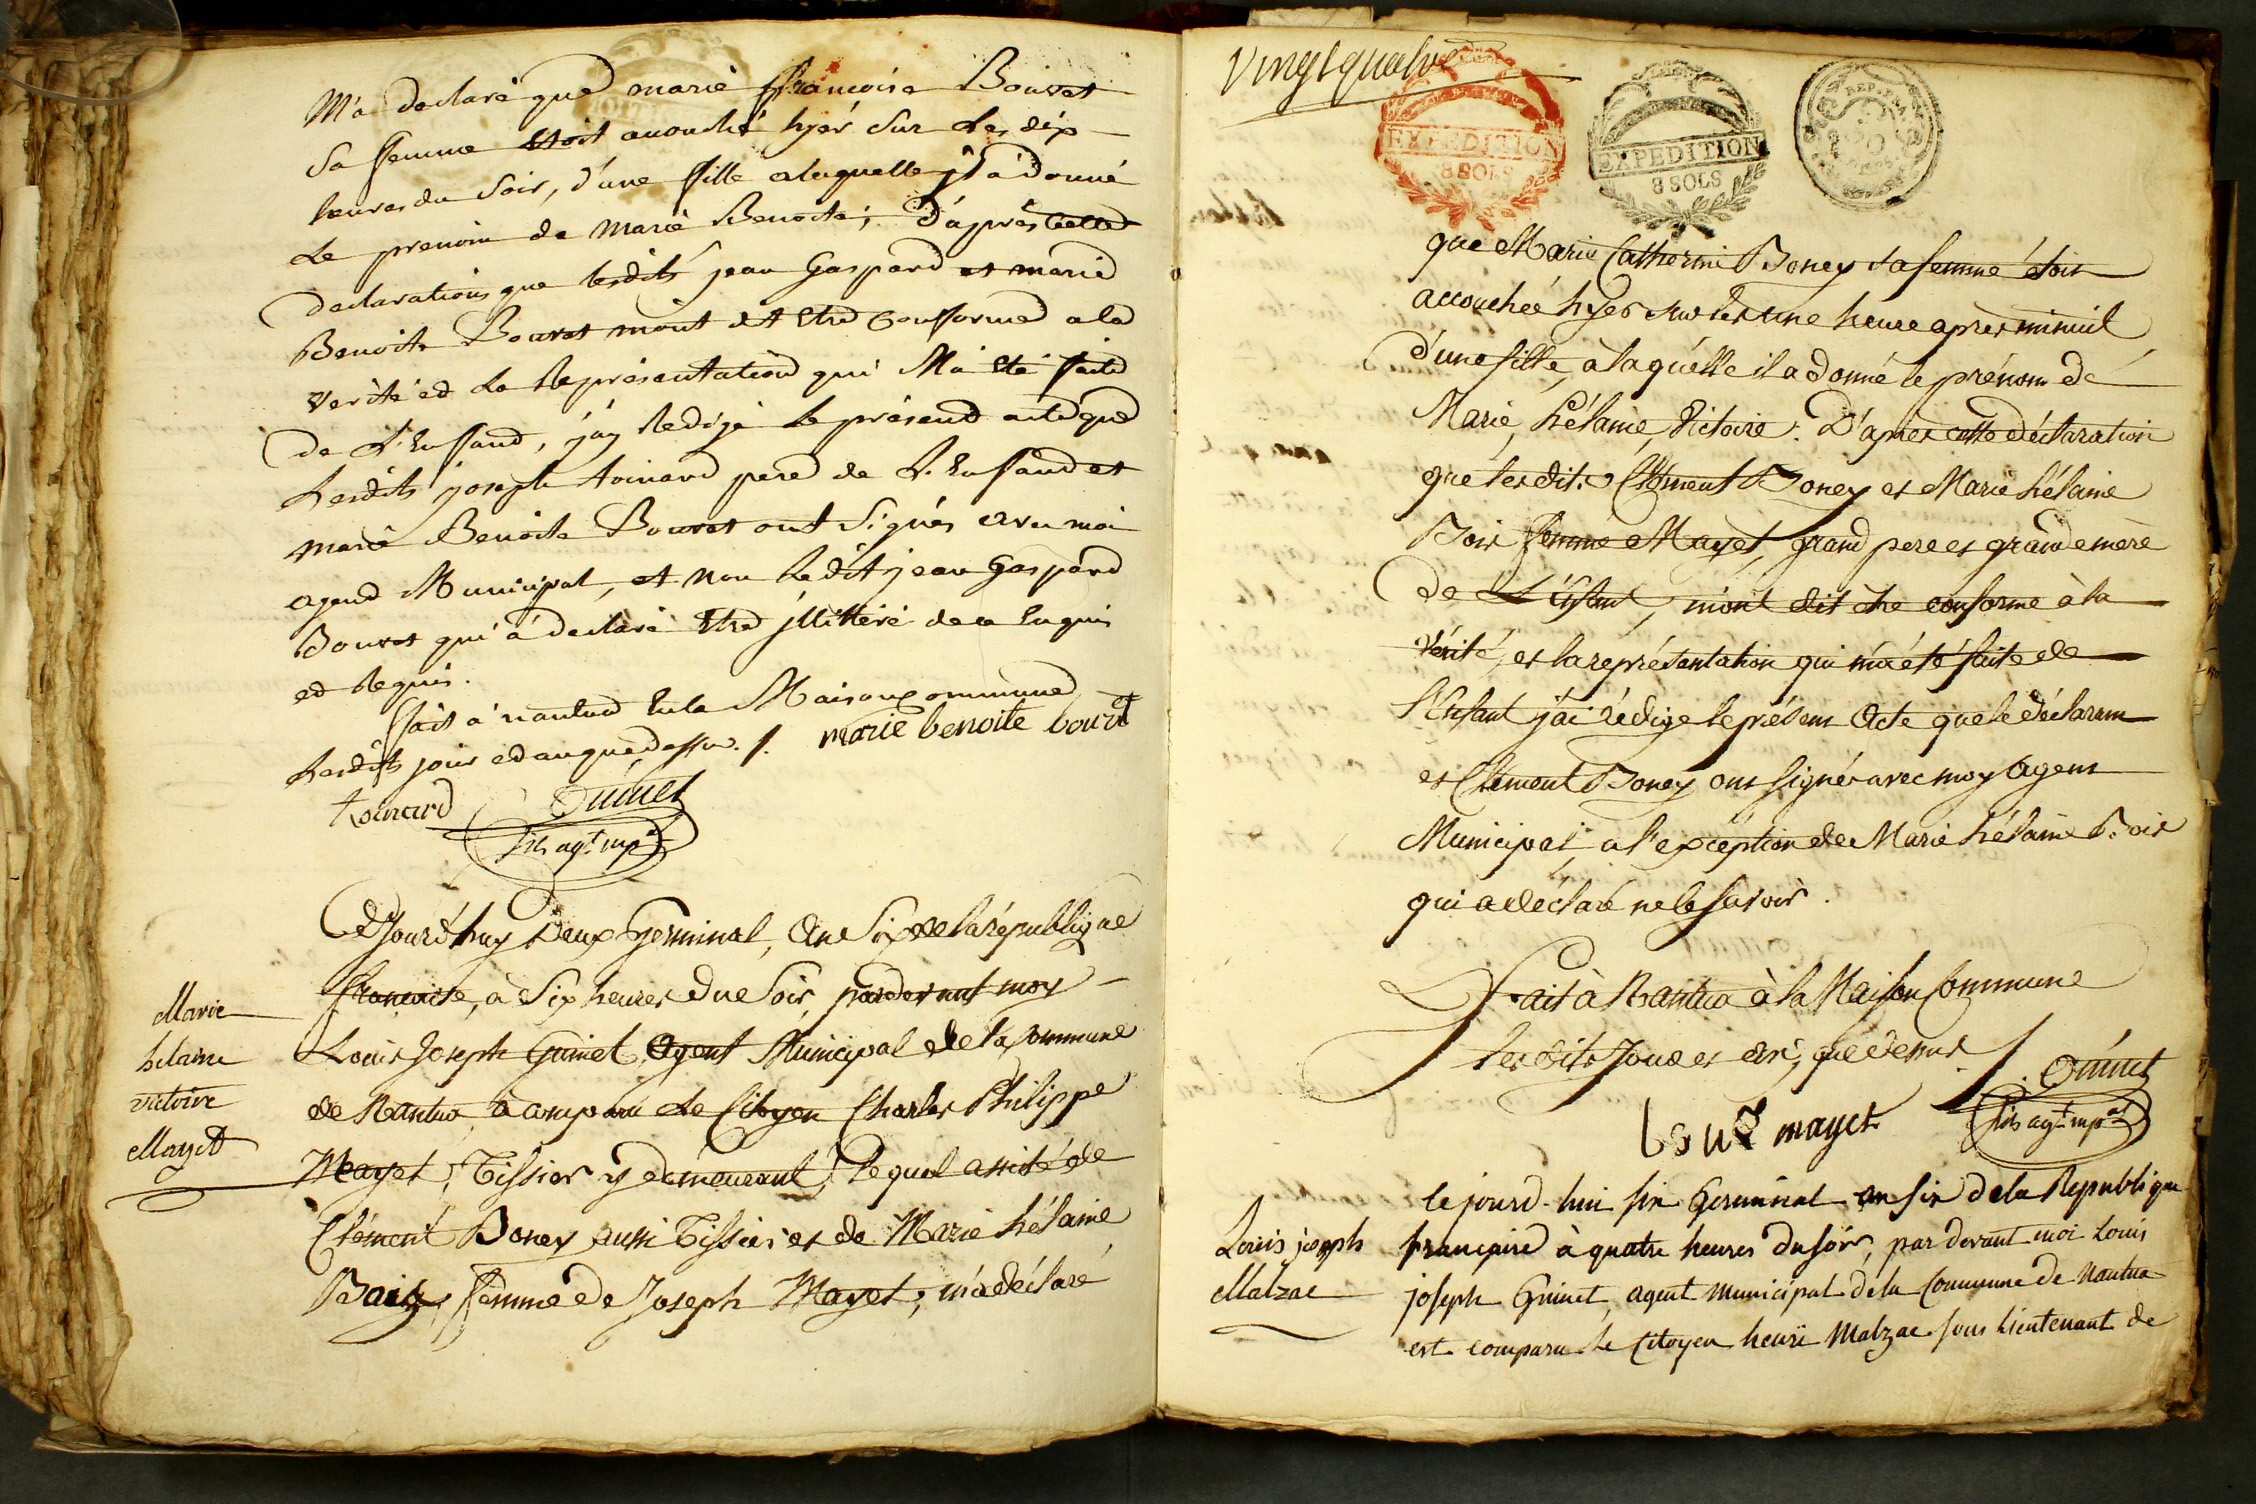 M'a declaré que marie ffrancoise Bouvet
sa ffemme Etoit accouché hyér sur Les dix
heures du soir, d'une ffille a laquelle jl a donné
Le prenom de marie Benoite; d'après cette
declarations que lesdits jean Gaspard et marie
Benoite Bouvet m'ont dit Etre Conforme a la
verité et la Représentation qui M'a Eté faite
de L'Enffand, j'ay Redigé Le présend acte que
Lesdits joseph toinard pere de L'Enffand et
marie Benoite Bouvet ont signés avec moi
agend Municipal, et non Ledit jean Gaspard
Bouvet qui a declaré Etre jllittéré de ce Enquis
ed Requis.
ffait a nantua En la Maison commune
Lesdits jour ed an que dessus. /. marie benoite bouvet
toinard Guinet
fils agt. mpal
Cejourd'huy Deux Germinal, An Six de la république
francaise, à Six heures du Soir, pardevant moy
Louis Joseph Guinet Agent Municipal de la Commune
de Nantua, à comparu Le Citoyen Charles Philippe
Mayet, Tissier y demeurant, lequel assité de
Clément Boney aussi Tissier et de Marie hélaine
Bois, femme de Joseph Mayet, m'a déclaré
Marie
hélaine
victoire
Mayet
Vingt quatre
EXPEDITION
8 SOLS
EXPEDITION
8 SOLS
REP. FRA
que Marie Catherine Boney sa femme étoit
accouchée hyer sur les une heure après minuit
d'une fille, à laquelle il a donné le prénom de
Marie, hélaine, Victoire. D'après cette déclaration
que lesdits Clément Boney et Marie hélaine
Bois femme Mayet, grand pere et grande mère
de L'Enfant, m'ont dit être conforme à la
vérité, et la représentation qui m'a été faite de
l'Enfant j'ai rédigé le présent Acte que le déclarant
et Clément Boney ont signés avec moy Agent
Municipal, a l'exception de Marie hélaine Bois
qui a déclaré ne le savoir.
Fait à Nantua à la Maison Commune
les dits Jour et an, que dessus /. Guinet
mayet fils agt mpal
Louis joseph
Malzac
le jourd-hui six Germinal an six de la Republique
française à quatre heures du soir, par devant moi Louis
joseph Guinet, agent municipal de la Commune de Nantua
est comparu le Citoyen henri Malzac sous Lieutenant de